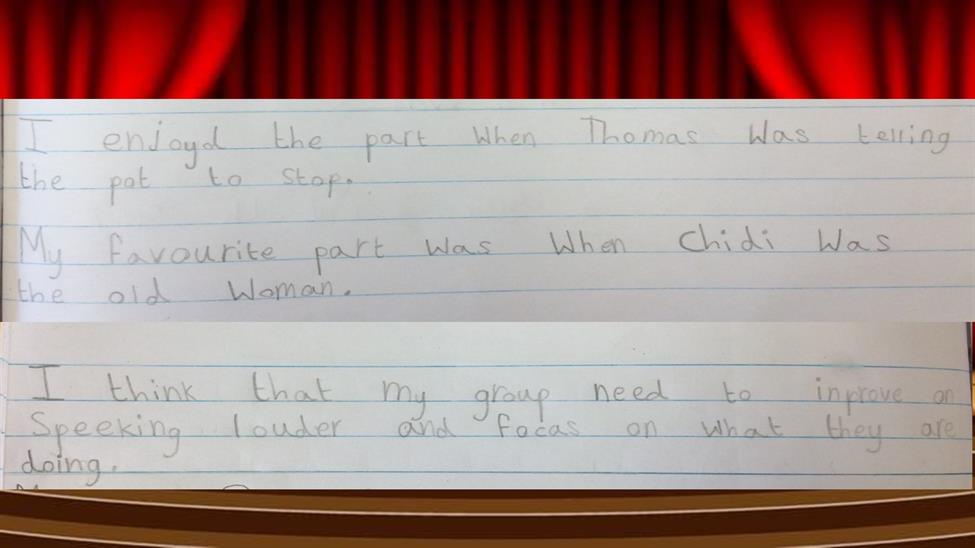 I enjoyd the part when Thomas was telling
the pot to stop.
My favourite part was when Chidi was
the old woman.
I think that my group need to inprove on
Speeking louder and focas on what they are
doing.